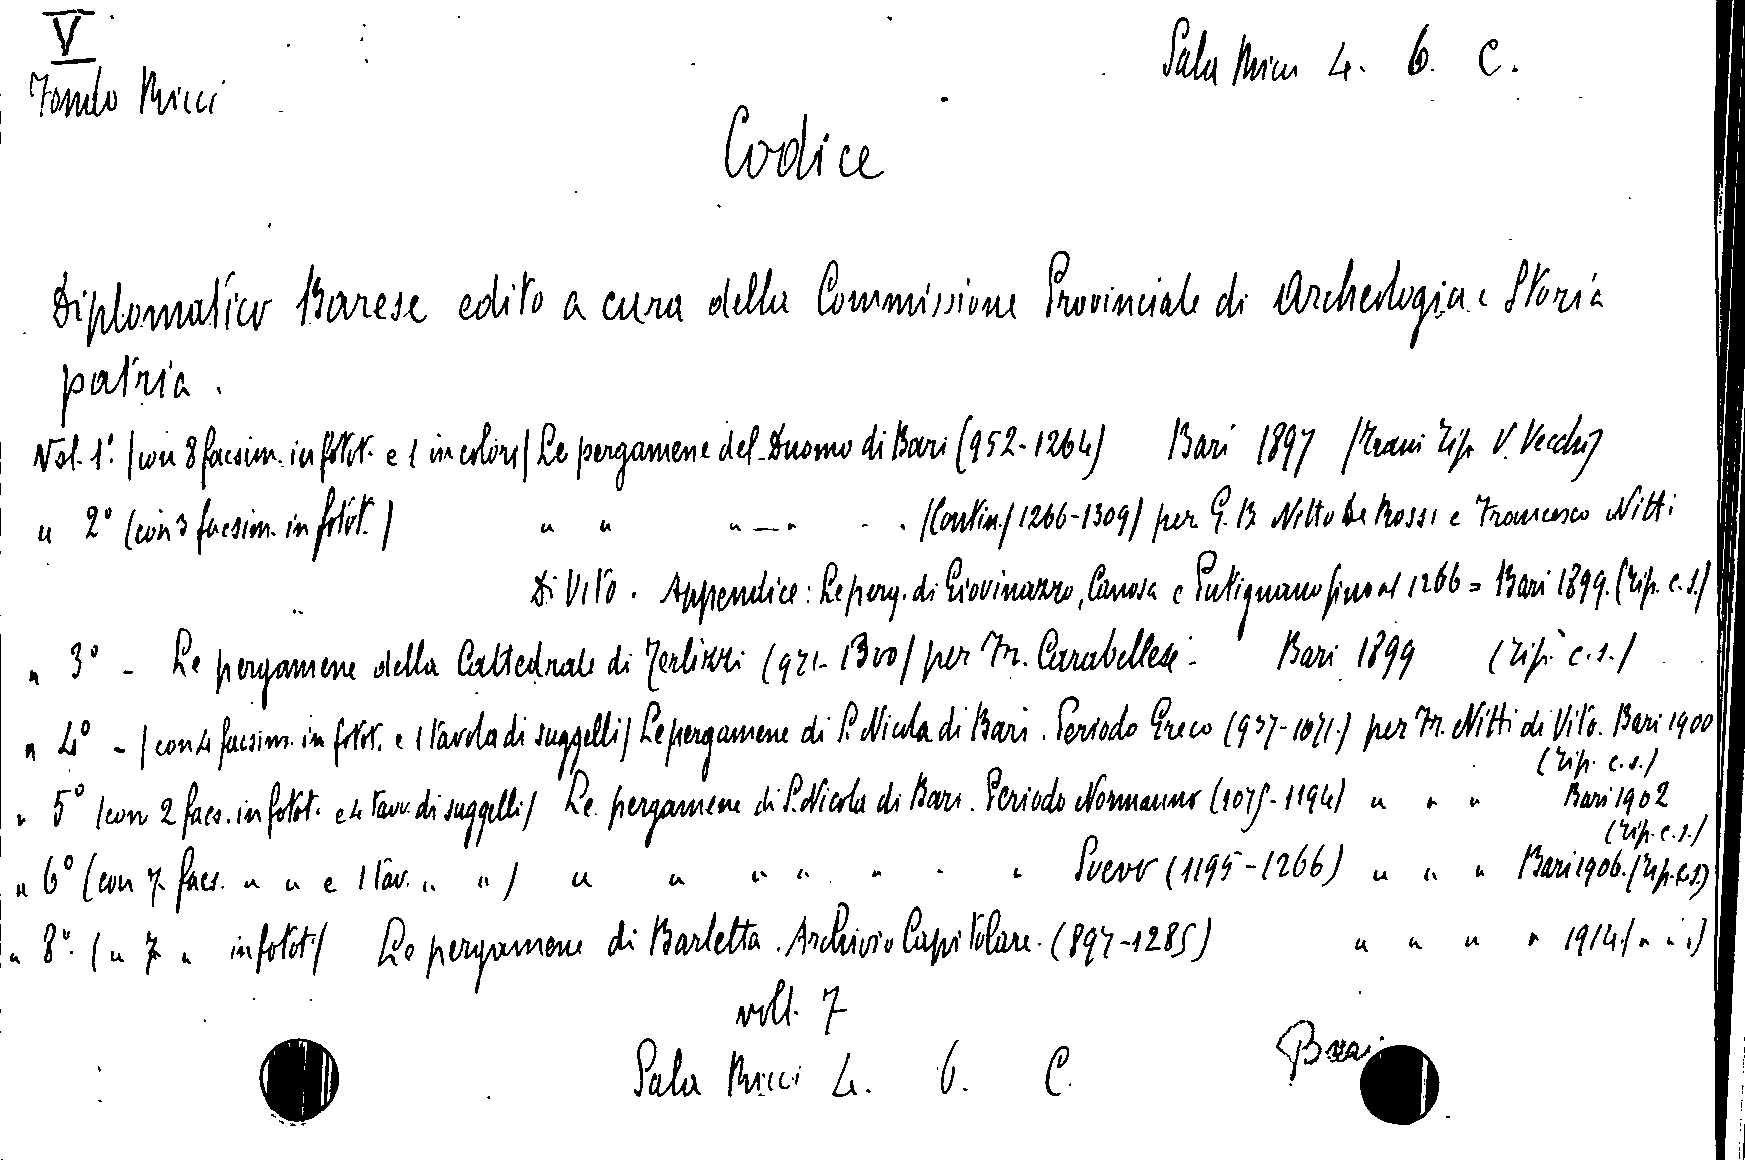 V
Fondo Ricci
Sala Ricci 4. 6. C.
Codice
Diplomatico Barese edito a cura della Commissione Provinciale di Archeologia e Storia
patria.
Vol. 1° (con 8 facsim. in fotot. e 1 in colori) Le pergamene del Duomo di Bari (952-1264) Bari 1897 (Trani Tip. V. Vecchi)
" 2° (con 3 facsim. in fotot.) " " " — " " " (Contin.) 1266-1309) per G. B. Nitto De Rossi e Francesco Nitti
Di Vito. Appendice: Le perg. di Giovinazzo, Canosa e Putignano fino al 1266 = Bari 1899. (Tip. c.s.)
" 3° - Le pergamene della Cattedrale di Terlizzi (971-1300) per Fr. Carabellese - Bari 1899 (Tip. c.s.)
" 4° - (con 4 facsim. in fotot. e 1 tavola di suggelli) Le pergamene di S. Nicola di Bari. Periodo Greco (937-1071.) per Fr. Nitti di Vito. Bari 1900
(Tip. c.s.)
" 5° (con 2 facs. in fotot. e 4 tavv. di suggelli) Le pergamene di S. Nicola di Bari. Periodo Normanno (1075-1194) " " " Bari 1902
(Tip. c.s.)
" 6° (con 7 facs. " " e 1 tav. " ") " " " " " " " Svevo (1195-1266) " " " Bari 1906. (Tip. c.s)
" 8° (" 7 " in fotot.) Le pergamene di Barletta. Archivio Capitolare. (897-1285) " " " " 1914. (" " ")
voll. 7
Sala Ricci 4. 6. C.